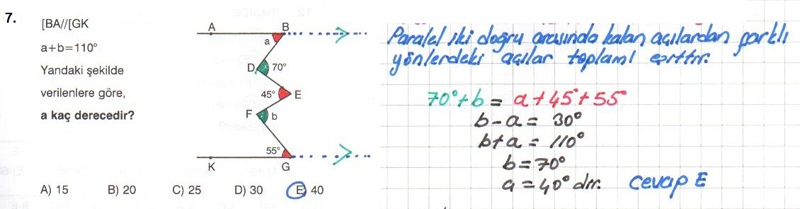 7. [BA//[GK
a+b=110°
Yandaki şekilde
verilenlere göre,
a kaç derecedir?
A B
a
D 70°
45° E
F b
55°
K G
A) 15 B) 20 C) 25 D) 30 E) 40
Paralel iki doğru arasında kalan açılardan farklı
yönlerdeki açılar toplamı eşittir.
70°+b = a+45°+55°
b-a = 30°
b+a = 110°
b=70°
a=40° dir. cevap E